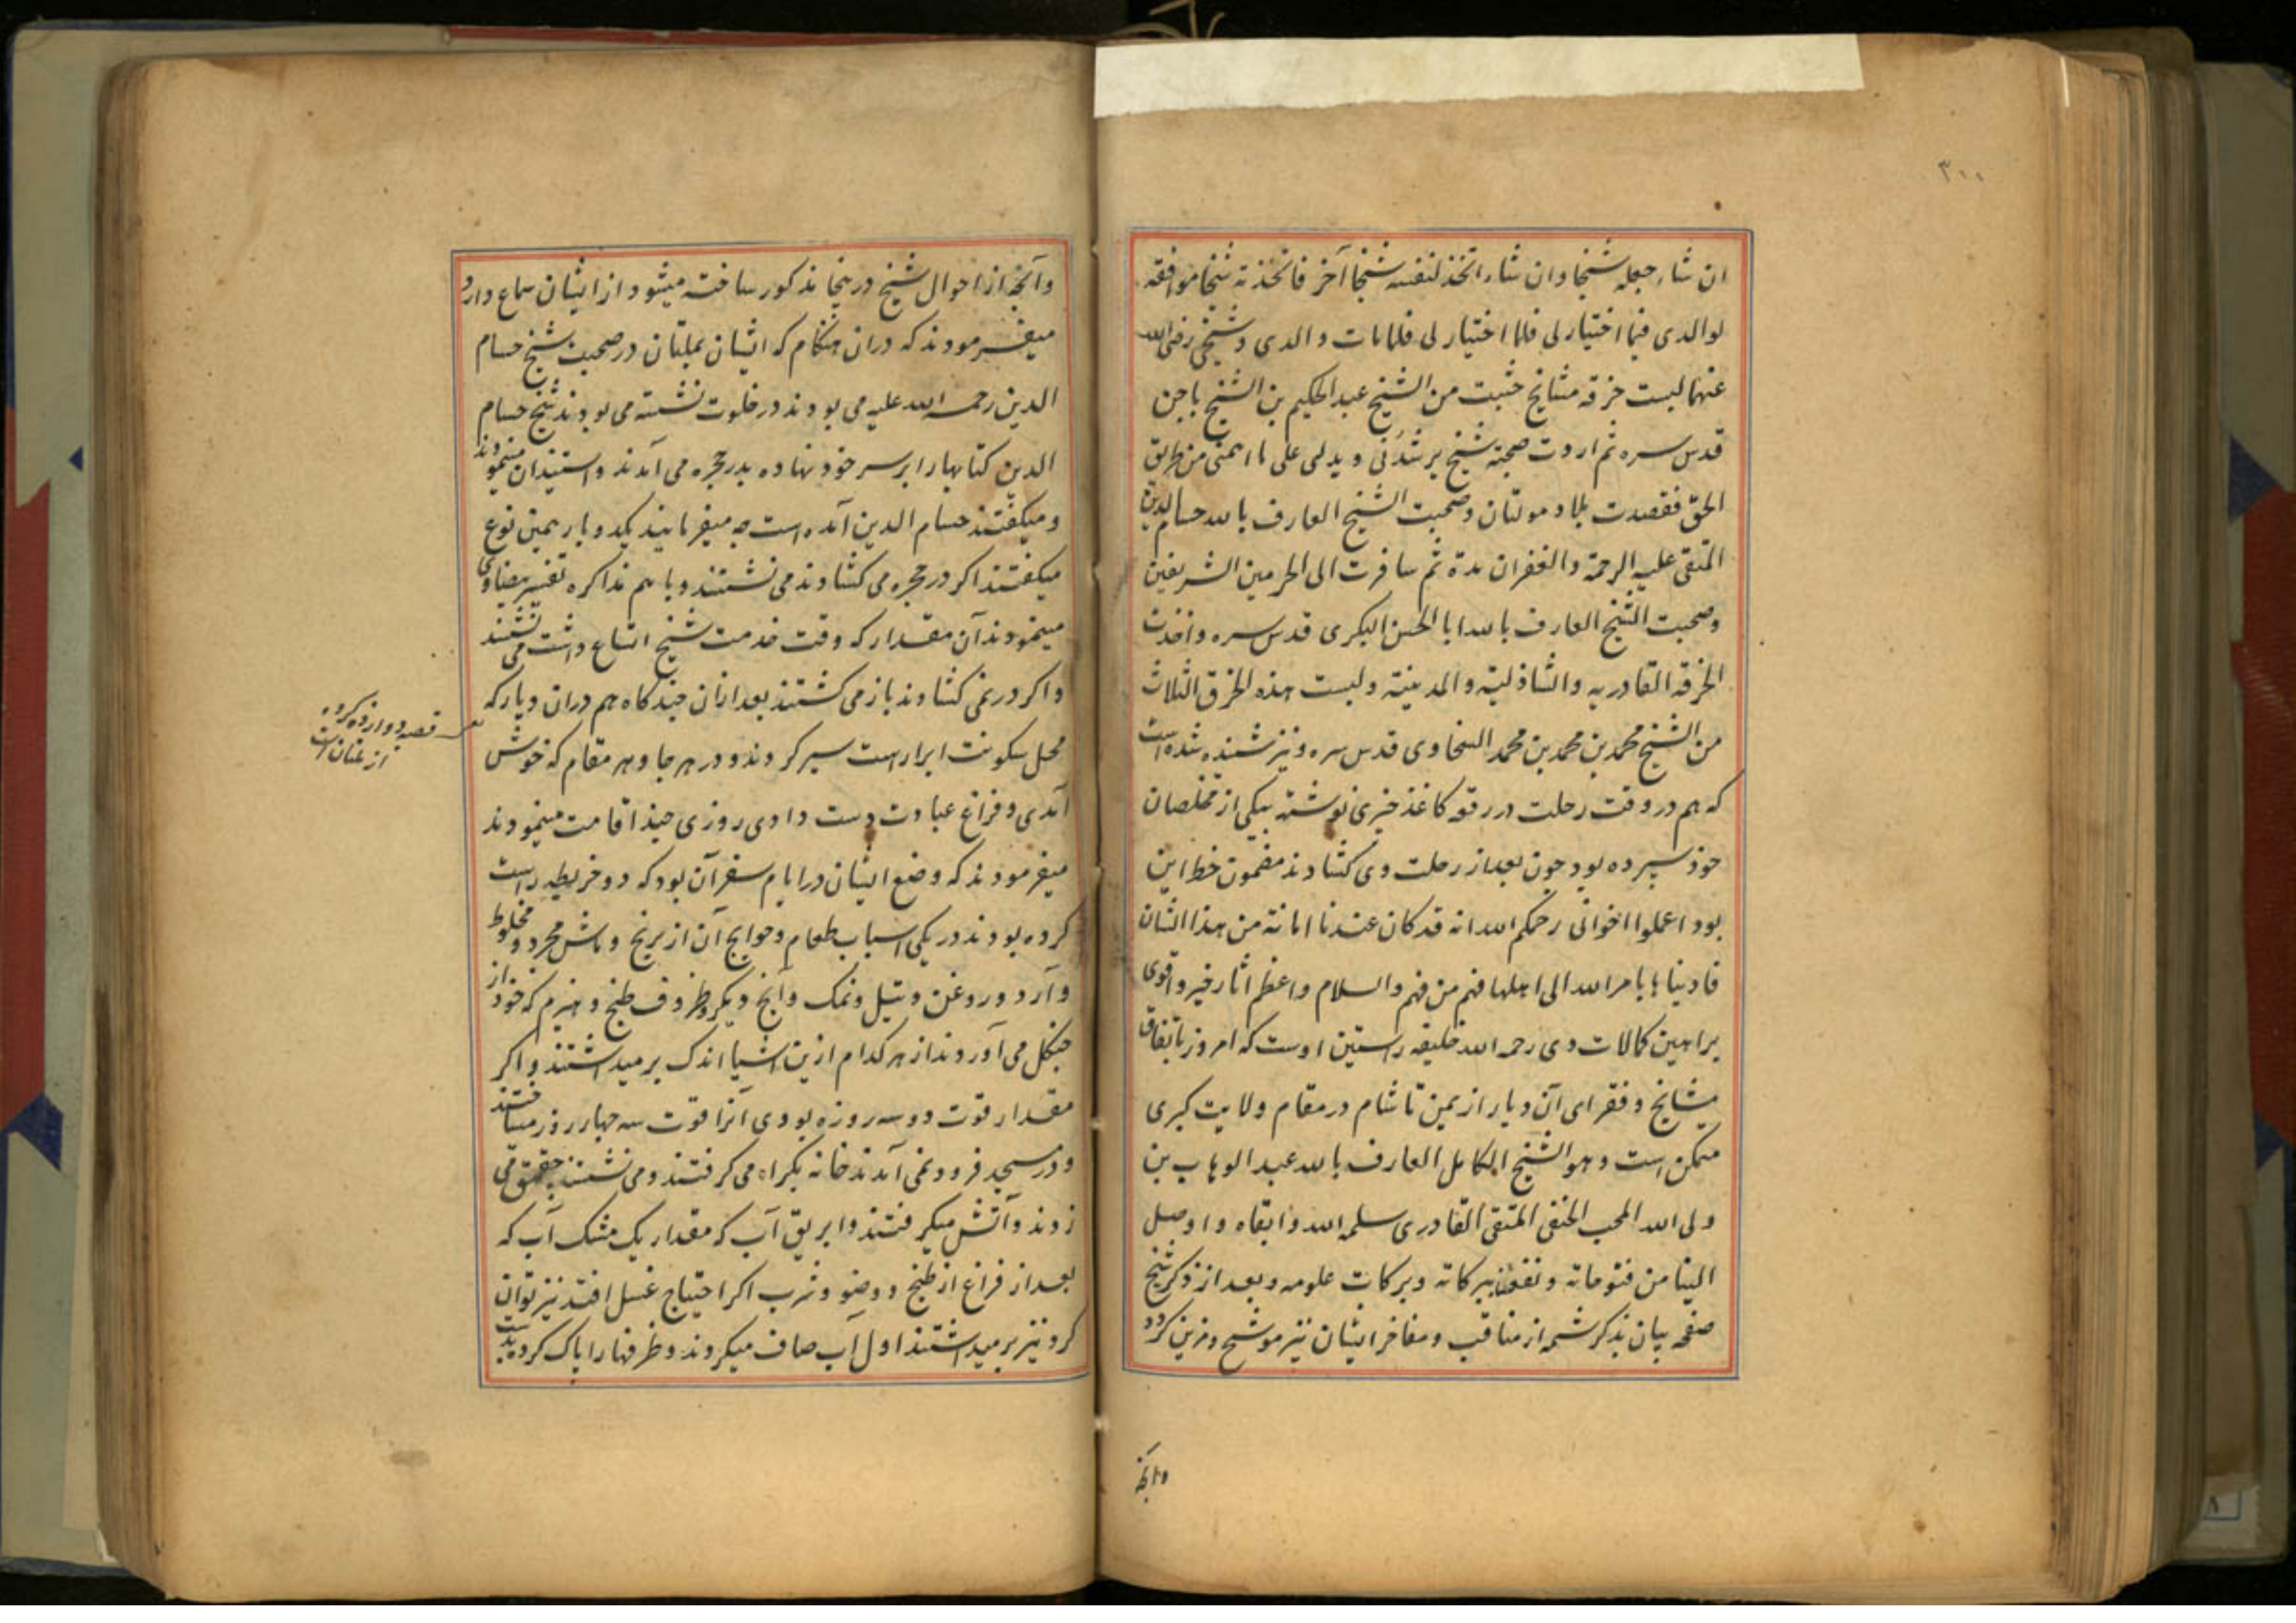 ۳۰۰
ان شاء جعله شیخا وان شاء اتخذ لنفسه شیخا آخر فاتخذته شیخا موافقه
لوالدی فیما اختیار لی فلما اختیار لی فلما مات والدی وشیخی رضی الله
عنهما لبست خرقه مشایخ چشت من الشیخ عبد الحکیم بن الشیخ باجن
قدس سره ثم اردت صحبة شیخ یرشدنی ویدلنی علی ما اهمنی من طریق
الحق فقصدت بلاد مولتان وصحبت الشیخ العارف بالله حسام الدین
المتقی علیه الرحمة والغفران مدة ثم سافرت الی الحرمین الشریفین
وصحبت الشیخ العارف بالله ابا الحسن البکری قدس سره واخذت
الخرقه القادریه والشاذلیة والمدینیة ولبست هذه الخرق الثلاث
من الشیخ محمد بن محمد بن محمد السخاوی قدس سره ونیز شنیده شده است
که هم در وقت رحلت در رقعه کاغذ خیری نوشته بیکی از مخلصان
خود سپرده بود چون بعد از رحلت وی کشادند مضمون خط این
بود اعملوا اخوانی رحمکم الله انه قد کان عندنا امانة من هذا الشان
فادیناها بامر الله الی اهلها فهم من فهم والسلام واعظم اثار خیر واقوی
براهین کمالات وی رحمه الله خلیفه راستین اوست که امروز باتفاق
مشایخ وفقرای آن دیار از یمن تا شام در مقام ولایت کبری
متمکن است وهو الشیخ الکامل العارف بالله عبد الوهاب بن
ولی الله المحب الحنفی المتقی القادری سلمه الله وابقاه واوصل
الینا من فتوحاته ونفعنا ببرکاته وبرکات علومه وبعد از ذکر شیخ
صفحه بیان بذکر شمه از مناقب ومفاخر ایشان نیز موشح ومزین کردد
وانچه
وآنچه از احوال شیخ درینجا مذکور ساخته میشود از ایشان سماع دارد
میفرمودند که دران هنکام که ایشان بملتان در صحبت شیخ حسام
الدین رحمه الله علیه می بودند در خلوت نشسته می بودند شیخ حسام
الدین کتابها را بر سر خود نهاده بدر حجره می آمدند واستیذان مینمودند
ومیکفتند حسام الدین آمده است چه میفرمایند یکدو بار همین نوع
میکفتند اکر در حجره می کشادند می نشستند وباهم مذاکره تفسیر بیضاوی
مینمودند آن مقدار که وقت خدمت شیخ اتساع داشت می نشستند
واکر در نمی کشادند باز می کشتند بعد ازان چند کاه هم دران دیار که
محل سکونت ابرار است سیر کردند ودر هر جا وهر مقام که خوش
آمدی وفراغ عبادت دست دادی روزی چند اقامت مینمودند
میفرمودند که وضع ایشان در ایام سفر آن بود که دو خریطه راست
کرده بودند در یکی اسباب طعام وحوایج آن از برنج وماش مجرد ومخلوط
وآرد وروغن وتیل ونمک وآنچ دیکر وظروف طبخ وهیزم که خود از
جنکل می آوردند از هر کدام ازین اشیا اندک برمیداشتند واکر
مقدار قوت دو سه روزه بودی آنرا قوت سه چهار روز میساختند
ودر مسجد فرود نمی آمدند خانه بکراه می کرفتند ومی نشستند چقمق می
زدند وآتش میکرفتند وابریق آب که مقدار یک مشک آب که
بعد از فراغ از طبخ ووضو وشرب اکر احتیاج غسل افتد نیز توان
کرد نیز برمیداشتند اول آب صاف میکردند وظرفها را پاک کرده بدست
قصبه دوازده کروه
از ملتان است